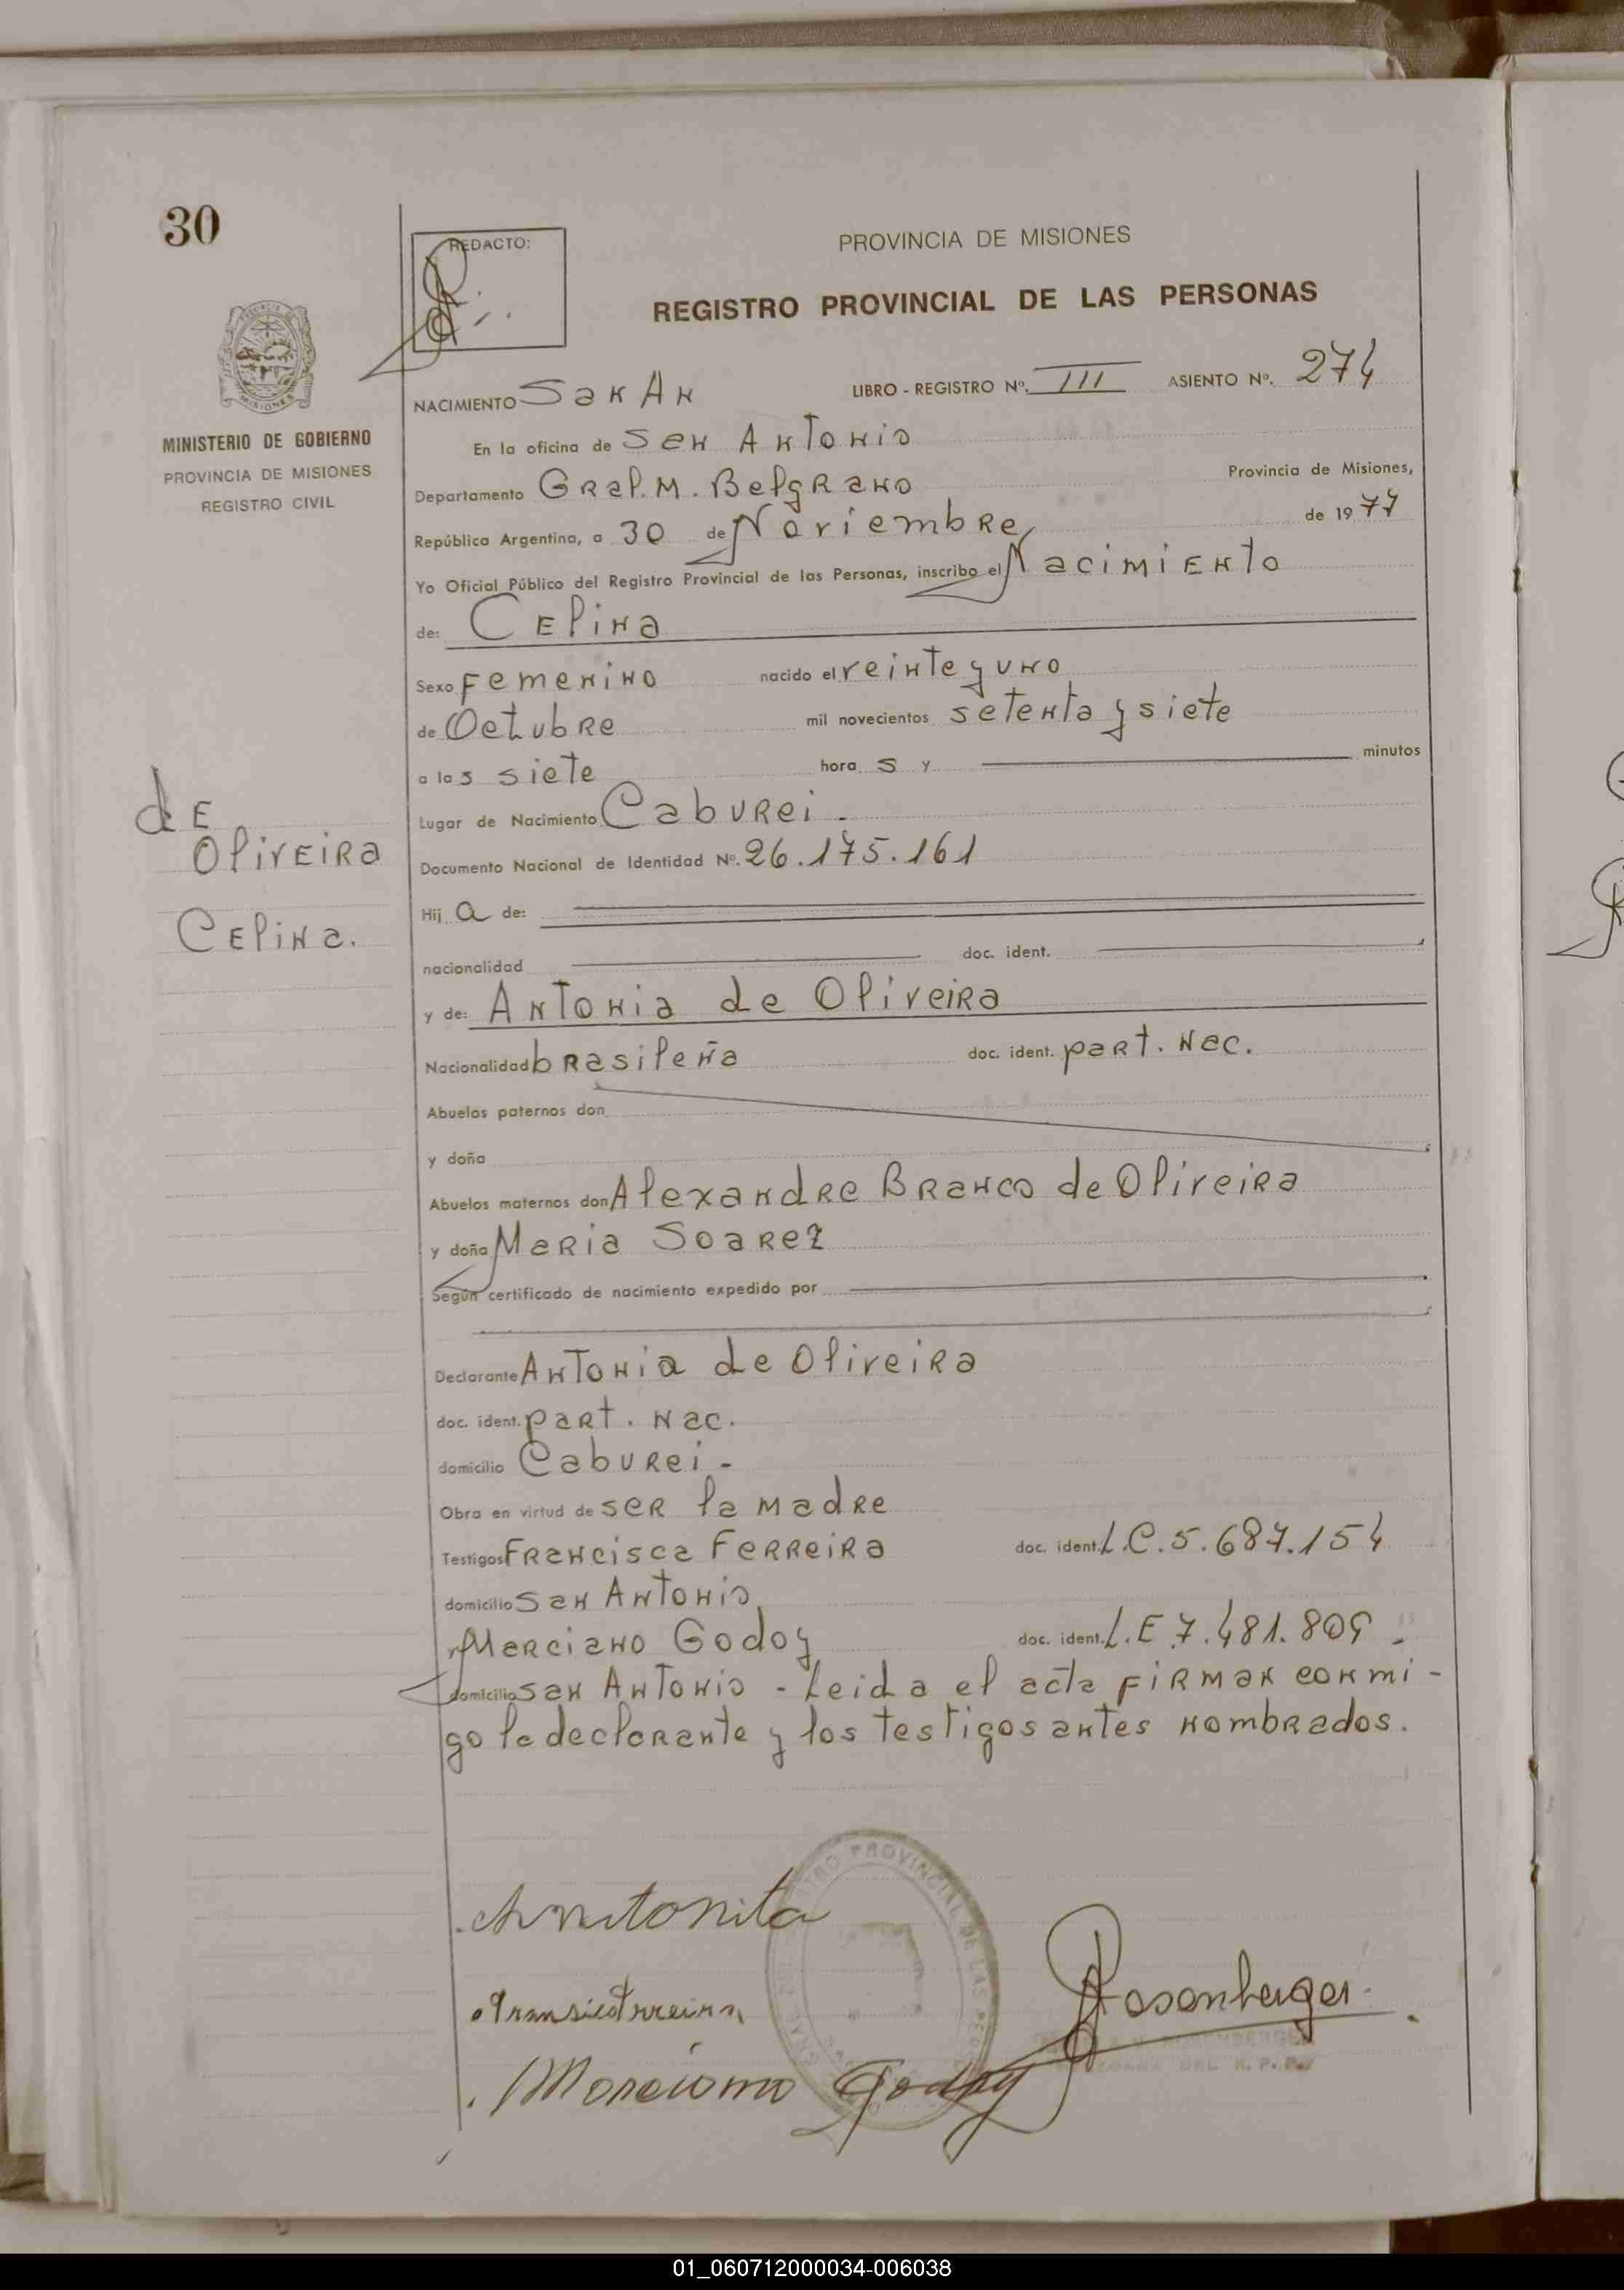 30
REDACTO:
PROVINCIA DE MISIONES
REGISTRO PROVINCIAL DE LAS PERSONAS
MINISTERIO DE GOBIERNO
PROVINCIA DE MISIONES
REGISTRO CIVIL
NACIMIENTO San An LIBRO - REGISTRO Nº. III ASIENTO Nº. 274
En la oficina de San Antonio
Departamento Gral. M. Belgrano Provincia de Misiones,
República Argentina, a 30 de Noviembre de 1977
Yo Oficial Público del Registro Provincial de las Personas, inscribo el Nacimiento
de: Celina
Sexo Femenino nacido el veinte y uno
de Octubre mil novecientos setenta y siete
a las siete hora s y minutos
Lugar de Nacimiento Caburei -
de
Oliveira
Celina.
Documento Nacional de Identidad Nº. 26.175.161
Hij a de:
nacionalidad doc. ident.
y de: Antonia de Oliveira
Nacionalidad brasileña doc. ident. part. nac.
Abuelos paternos don
y doña
Abuelos maternos don Alexandre Branco de Oliveira
y doña Maria Soarez
Según certificado de nacimiento expedido por
Declarante Antonia de Oliveira
doc. ident. part. nac.
domicilio Caburei -
Obra en virtud de ser la madre
Testigos Francisca Ferreira doc. ident. L.C. 5.687.154
domicilio San Antonio
y Marciano Godoy doc. ident. L.E 7.481.809 -
domicilio San Antonio - Leida el acta firman conmi-
go la declarante y los testigos antes nombrados.
Antonita
Rosenberger
Marciano Godoy
REGISTRO PROVINCIAL DE LAS PERSONAS
DEL R. P. P.
01_060712000034-006038